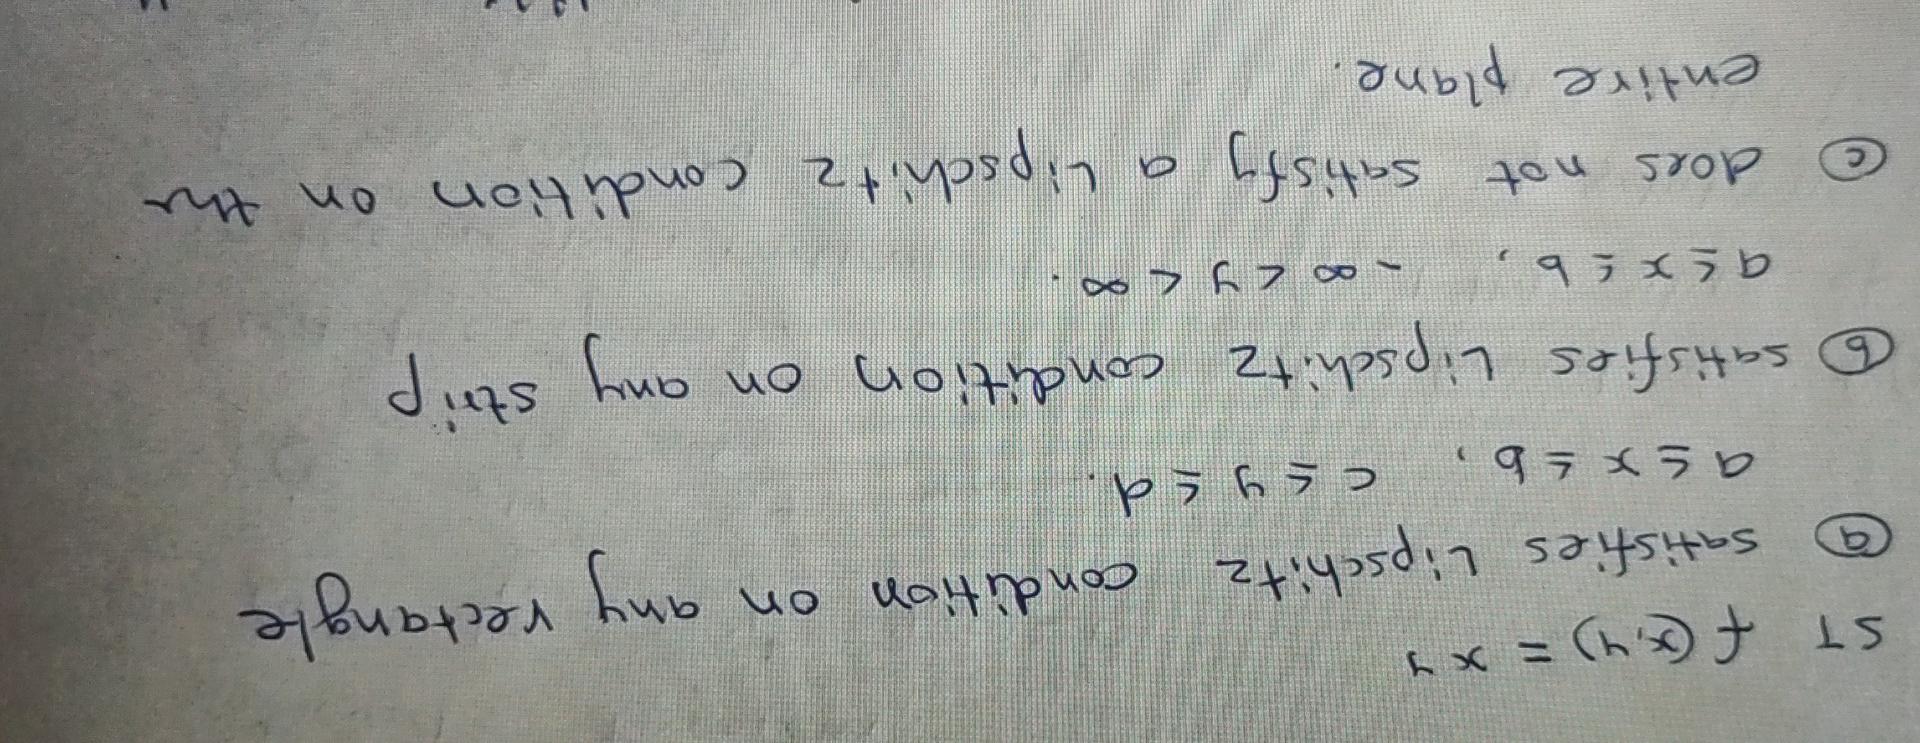 ST f(x,y) = xy
ⓐ satisfies Lipschitz condition on any rectangle
a ≤ x ≤ b, c ≤ y ≤ d.
ⓑ satisfies Lipschitz condition on any strip
a ≤ x ≤ b, -∞ < y < ∞.
ⓒ does not satisfy a Lipschitz condition on the
entire plane.